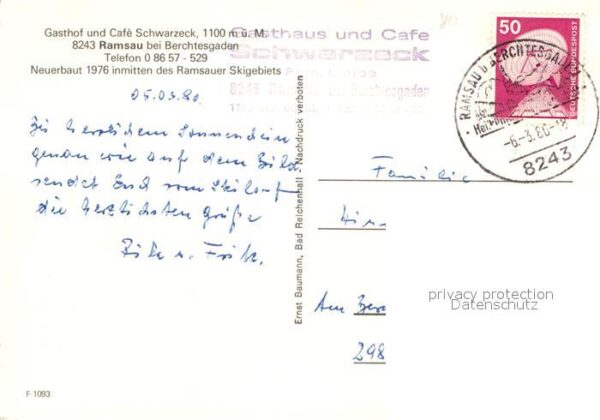 Gasthof und Café Schwarzeck, 1100 m ü. M.
8243 Ramsau bei Berchtesgaden
Telefon 0 86 57 - 529
Neuerbaut 1976 inmitten des Ramsauer Skigebiets
Gasthaus und Cafe
Schwarzeck
8243 Ramsau bei Berchtesgaden
50
DEUTSCHE BUNDESPOST
RAMSAU b BERCHTESGADEN
-6.-3.80-
8243
05.03.80
Bei herrlichem Sonnenschein
genau wie auf dem Bild
sendet Euch vom Skilauf
die herzlichsten Grüße
u. Fritz.
Ernst Baumann, Bad Reichenhall - Nachdruck verboten
Familie
Am
298
privacy protection
Datenschutz
F 1093